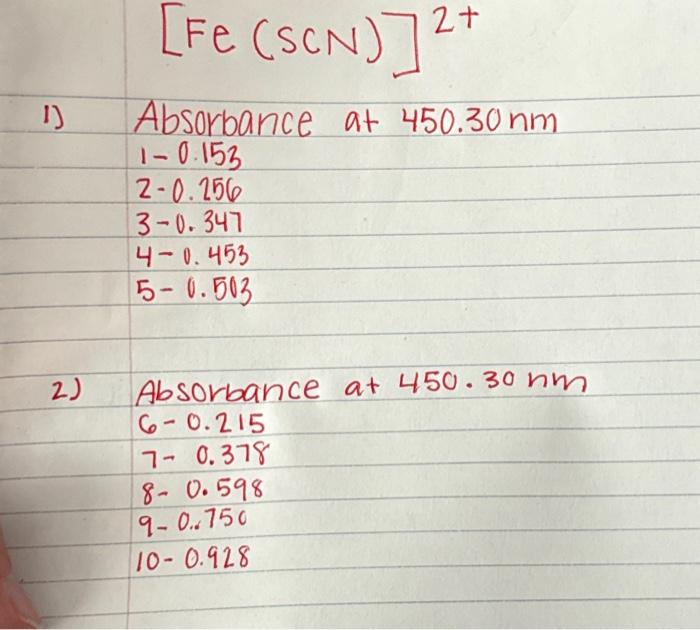 [Fe (SCN)]²⁺
1) Absorbance at 450.30 nm
1 - 0.153
2 - 0.256
3 - 0.347
4 - 0.453
5 - 0.503
2) Absorbance at 450.30 nm
6 - 0.215
7 - 0.378
8 - 0.598
9 - 0..750
10 - 0.928